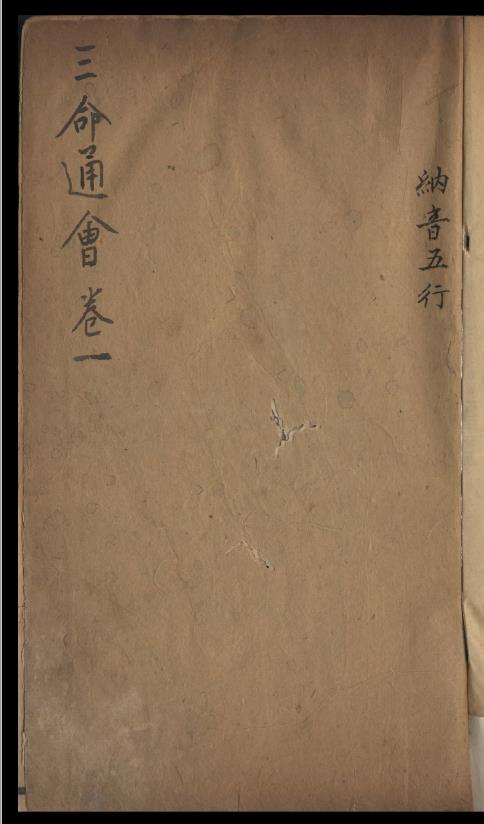 納音五行
三命通會 卷一